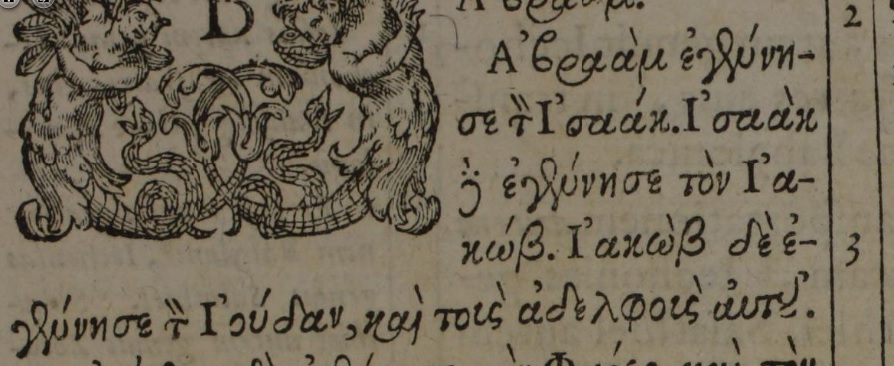 Β
Ἀβραάμ.
2
Ἀβραὰμ ἐγέννη-
σε τὸν Ἰσαάκ. Ἰσαὰκ
δὲ ἐγέννησε τὸν Ἰα-
κώβ. Ἰακὼβ δὲ ἐ-
3
γέννησε τὸν Ἰούδαν, καὶ τοὺς ἀδελφοὺς αὐτοῦ.